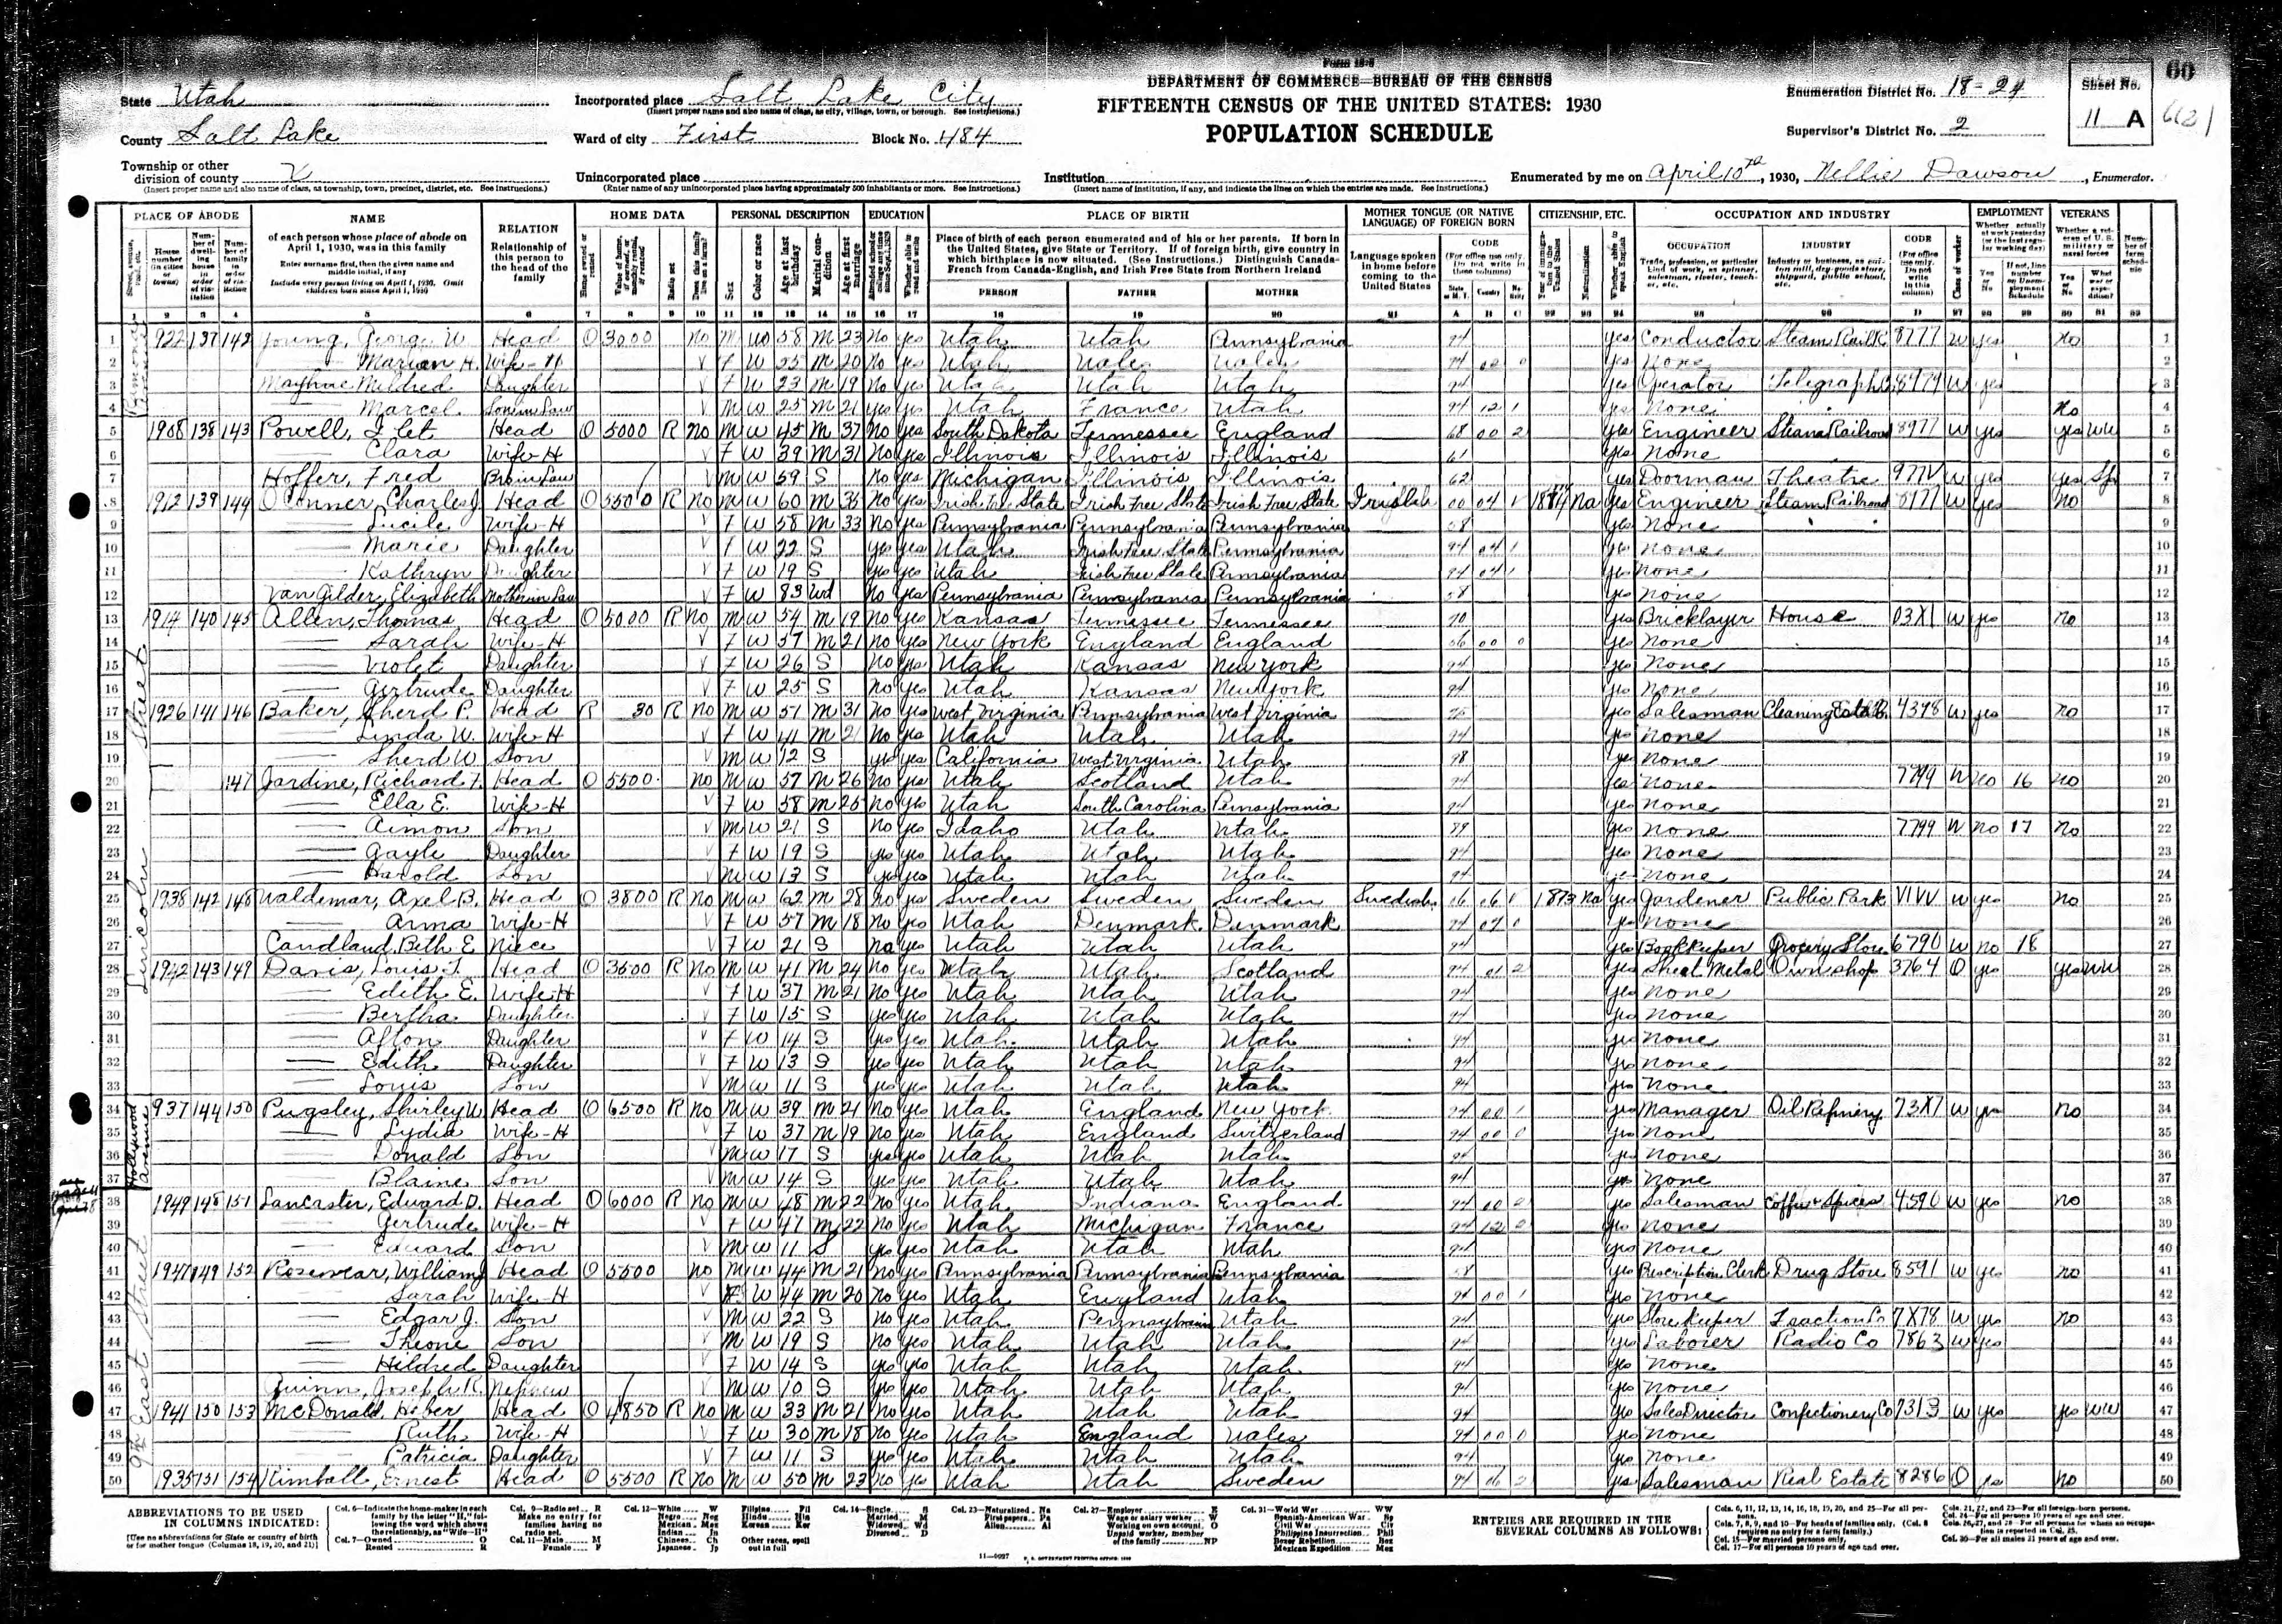 Form 15-6
DEPARTMENT OF COMMERCE—BUREAU OF THE CENSUS
FIFTEENTH CENSUS OF THE UNITED STATES: 1930
POPULATION SCHEDULE
State Utah
County Salt Lake
Township or other division of county
(Insert proper name and also name of class, as township, town, precinct, district, etc. See instructions.)
Incorporated place Salt Lake City
(Insert proper name and also name of class, as city, village, town, or borough. See instructions.)
Ward of city First Block No. 484
Unincorporated place
(Enter name of any unincorporated place having approximately 500 inhabitants or more. See instructions.)
Institution
(Insert name of institution, if any, and indicate the lines on which the entries are made. See instructions.)
Enumeration District No. 18-24
Supervisor's District No. 2
Sheet No. 11 A
60
Enumerated by me on April 10th, 1930, Nellie Dawson, Enumerator.
PLACE OF ABODE NAME RELATION HOME DATA PERSONAL DESCRIPTION EDUCATION PLACE OF BIRTH MOTHER TONGUE (OR NATIVE LANGUAGE) OF FOREIGN BORN CITIZENSHIP, ETC. OCCUPATION AND INDUSTRY EMPLOYMENT VETERANS
of each person whose place of abode on April 1, 1930, was in this family
Enter surname first, then the given name and middle initial, if any
Include every person living on April 1, 1930. Omit children born since April 1, 1930
Relationship of this person to the head of the family
Place of birth of each person enumerated and of his or her parents. If born in the United States, give State or Territory. If of foreign birth, give country in which birthplace is now situated. (See Instructions.) Distinguish Canada-French from Canada-English, and Irish Free State from Northern Ireland
PERSON FATHER MOTHER
Language spoken in home before coming to the United States
CODE
OCCUPATION INDUSTRY CODE
1 922 137 142 Young, George W Head O 3000 No M W 58 M 23 No yes Utah Utah Pennsylvania 94 yes Conductor Steam Rail R 8777 W yes no
2 Marian H. Wife-H V F W 55 M 20 No yes Utah Wales Wales 94 00 0 yes None
3 Mildred Daughter V F W 23 M 19 No yes Utah Utah Utah 94 yes Operator Telegraph 8974 W yes
4 Marcel Son in Law V M W 25 M 21 yes yes Utah France Utah 94 12 1 yes None No
5 1908 138 143 Powell, Head O 5000 R No M W 45 M 37 No yes South Dakota Tennessee England 68 00 2 yes Engineer Steam Railroad 8977 W yes yes WW
6 Clara Wife-H V F W 39 M 31 No yes Illinois Illinois Illinois 61 yes None
7 Hoffer, Fred Bro in Law V M W 59 S No yes Michigan Illinois Illinois 62 yes Doorman Theatre 97VV W yes yes Sp
8 1912 139 144 O'Conner, Charles J. Head O 5500 R No M W 60 M 35 No yes Irish Free State Irish Free State Irish Free State 00 04 1 Na yes Engineer Steam Railroad 8977 W yes no
9 Lucile Wife-H V F W 58 M 33 No yes Pennsylvania Pennsylvania Pennsylvania 58 yes None
10 Marie Daughter V F W 22 S yes yes Utah Irish Free State Pennsylvania 94 04 1 yes None
11 Kathryn Daughter V F W 19 S yes yes Utah Irish Free State Pennsylvania 94 04 1 yes None
12 Van Gilder, Elizabeth Mother in Law V F W 83 Wd No yes Pennsylvania Pennsylvania Pennsylvania 58 yes None
13 1914 140 145 Allen, Thomas Head O 5000 R No M W 54 M 19 No yes Kansas Tennessee Tennessee 70 yes Bricklayer House 03X1 W yes no
14 Sarah Wife-H V F W 57 M 21 No yes New York England England 56 00 0 yes None
15 Violet Daughter V F W 26 S No yes Utah Kansas New York 94 yes None
16 Gertrude Daughter V F W 25 S No yes Utah Kansas New York 94 yes None
17 1926 141 146 Baker, Sherd P. Head R 30 R No M W 51 M 31 No yes West Virginia Pennsylvania West Virginia 75 yes Salesman Cleaning Estab. 4398 W yes no
18 Linda W. Wife-H V F W 41 M 21 No yes Utah Utah Utah 94 yes None
19 Sherd W Son V M W 12 S yes yes California West Virginia Utah 98 yes None
20 147 Jardine, Richard F. Head O 5500 No M W 57 M 26 No yes Utah Scotland Utah 94 yes None 7799 W no 16 no
21 Ella E. Wife-H V F W 58 M 25 No yes Utah South Carolina Pennsylvania 94 yes None
22 Aimon Son V M W 21 S No yes Idaho Utah Utah 89 yes None 7799 W no 17 no
23 Gayle Daughter V F W 19 S yes yes Utah Utah Utah 94 yes None
24 Harold Son V M W 13 S yes yes Utah Utah Utah 94 yes None
25 1938 142 148 Waldemar, Axel B. Head O 3800 R No M W 62 M 28 No yes Sweden Sweden Sweden Swedish 06 06 1873 Na yes Gardener Public Park VIVV W yes no
26 Anna Wife-H V F W 57 M 18 No yes Utah Denmark Denmark 94 07 0 yes None
27 Candland, Beth E Niece V F W 21 S No yes Utah Utah Utah 94 yes Bookkeeper Grocery Store 6790 W no 18
28 1942 143 149 Davis, Louis J. Head O 3600 R No M W 41 M 24 No yes Utah Utah Scotland 94 01 2 yes Sheet Metal Own shop 3764 O yes yes WW
29 Edith E. Wife-H V F W 37 M 21 No yes Utah Utah Utah 94 yes None
30 Bertha Daughter V F W 15 S yes yes Utah Utah Utah 94 yes None
31 Afton Daughter V F W 14 S yes yes Utah Utah Utah 94 yes None
32 Edith Daughter V F W 13 S yes yes Utah Utah Utah 94 yes None
33 Louis Son V M W 11 S yes yes Utah Utah Utah 94 yes None
34 937 144 150 Pugsley, Shirley W Head O 6500 R No M W 39 M 21 No yes Utah England New York 94 00 1 yes Manager Oil Refinery 73X1 W yes no
35 Lydia Wife-H V F W 37 M 19 No yes Utah England Switzerland 94 00 0 yes None
36 Donald Son V M W 17 S yes yes Utah Utah Utah 94 yes None
37 Blaine Son V M W 14 S yes yes Utah Utah Utah 94 yes None
38 1949 148 151 Lancaster, Edward D. Head O 6000 R No M W 48 M 22 No yes Utah Indiana England 94 00 2 yes Salesman Coffee & Spices 4590 W yes no
39 Gertrude Wife-H V F W 47 M 22 No yes Utah Michigan France 94 12 2 yes None
40 Edward Son V M W 11 S yes yes Utah Utah Utah 94 yes None
41 1947 149 152 Rosevear, William J Head O 5500 No M W 44 M 21 No yes Pennsylvania Pennsylvania Pennsylvania 58 yes Prescription Clerk Drug Store 8591 W yes no
42 Sarah Wife-H F W 44 M 20 No yes Utah England Utah 94 00 1 yes None
43 Edgar J. Son V M W 22 S No yes Utah Pennsylvania Utah 94 yes Store Keeper Traction Co 7X78 W yes no
44 Theone Son V M W 19 S No yes Utah Utah Utah 94 yes Laborer Radio Co 7863 W yes
45 Hildred Daughter V F W 14 S yes yes Utah Utah Utah 94 yes None
46 Quinn, Joseph R. Nephew V M W 10 S yes yes Utah Utah Utah 94 yes None
47 1941 150 153 McDonald, Heber Head O 4850 R No M W 33 M 21 No yes Utah Utah Utah 94 yes Sales Director Confectionery Co 7313 W yes yes WW
48 Ruth Wife-H V F W 30 M 18 No yes Utah England Wales 94 00 0 yes None
49 Patricia Daughter V F W 11 S yes yes Utah Utah Utah 94 yes None
50 1935 151 154 Kimball, Ernest Head O 5500 R No M W 50 M 23 No yes Utah Utah Sweden 94 06 2 yes Salesman Real Estate 8286 O yes no
Lincoln Street
Hollywood Avenue
9th East Street
ABBREVIATIONS TO BE USED IN COLUMNS INDICATED:
[Use no abbreviations for State or country of birth or for mother tongue (Columns 18, 19, 20, and 21)]
Col. 6—Indicate the home-maker in each family by the letter "H," following the word which shows the relationship, as "Wife—H"
Col. 7—Owned O
Rented R
Col. 9—Radio set R
Make no entry for families having no radio set.
Col. 11—Male M
Female F
Col. 12—White W
Negro Neg
Mexican Mex
Indian In
Chinese Ch
Japanese Jp
Filipino Fil
Hindu Hin
Korean Kor
Other races, spell out in full
Col. 14—Single S
Married M
Widowed Wd
Divorced D
Col. 23—Naturalized Na
First papers Pa
Alien Al
Col. 27—Employer E
Wage or salary worker W
Working on own account O
Unpaid worker, member of the family NP
Col. 31—World War WW
Spanish-American War Sp
Civil War Civ
Philippine Insurrection Phil
Boxer Rebellion Box
Mexican Expedition Mex
ENTRIES ARE REQUIRED IN THE SEVERAL COLUMNS AS FOLLOWS:
Cols. 6, 11, 12, 13, 14, 16, 18, 19, 20, and 25—For all persons.
Cols. 7, 8, 9, and 10—For heads of families only. (Col. 8 requires no entry for a farm family.)
Col. 15—For married persons only.
Col. 17—For all persons 10 years of age and over.
Cols. 21, 22, and 23—For all foreign-born persons.
Col. 24—For all persons 10 years of age and over.
Cols. 26, 27, and 28—For all persons for whom an occupation is reported in Col. 25.
Col. 30—For all males 21 years of age and over.